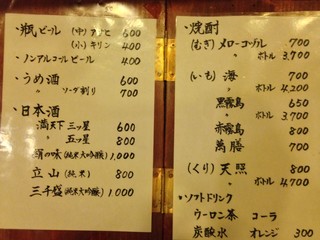 ・瓶ビール (中)アサヒ 600
(小)キリン 400
・ノンアルコールビール 400
・うめ酒 600
〃 ソーダ割り 700
・日本酒
満天下 三ツ星 600
〃 五ツ星 800
の味(純米大吟醸) 1,000
立山(純米) 800
三千盛(純米大吟醸) 1,000
・焼酎
(むぎ)メローコヅル 700
〃 ボトル 3,700
(いも)海 700
〃 ボトル 4,200
黒霧島 650
〃 ボトル 3,700
赤霧島 800
萬膳 700
(くり)天照 800
〃 ボトル 4,700
・ソフトドリンク
ウーロン茶 コーラ
炭酸水 オレンジ 300